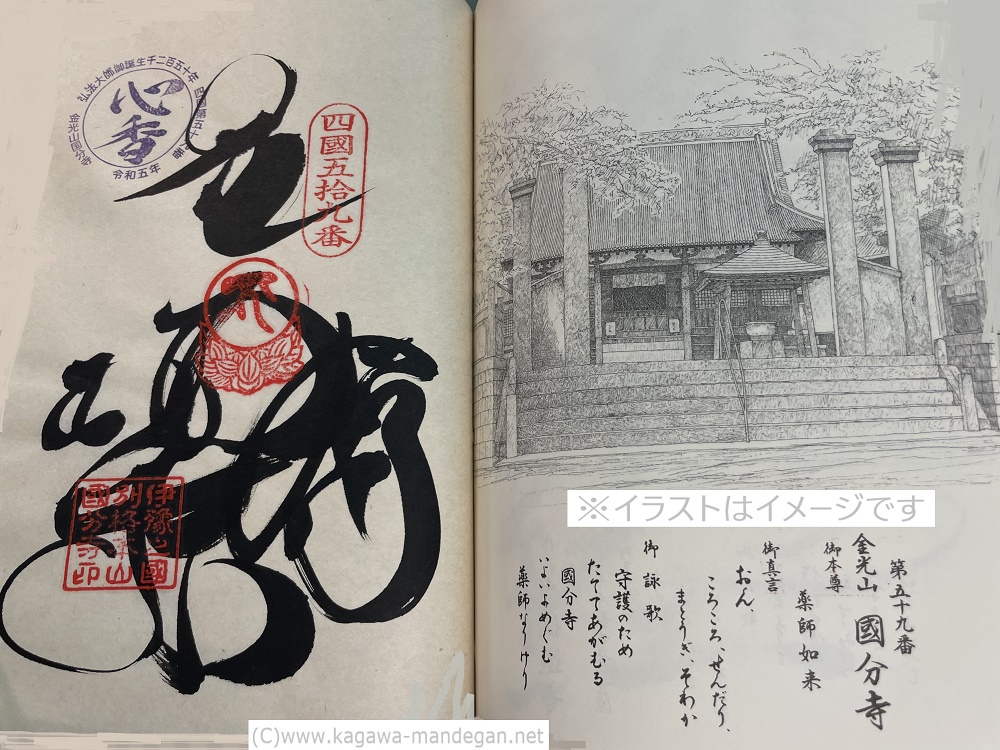 弘法大師御誕生千二百五十年
心香
四国第五十九番
金光山国分寺
令和五年
四國五拾九番
伊豫之國
別格本山
國分寺印
※イラストはイメージです
第五十九番
金光山 國分寺
御本尊
薬師如来
御真言
おん、
ころころ、せんだり、
まとうぎ、そわか
御詠歌
守護のため
たててあがむる
國分寺
いよいよめぐむ
薬師なりけり
(C)www.kagawa-mandegan.net